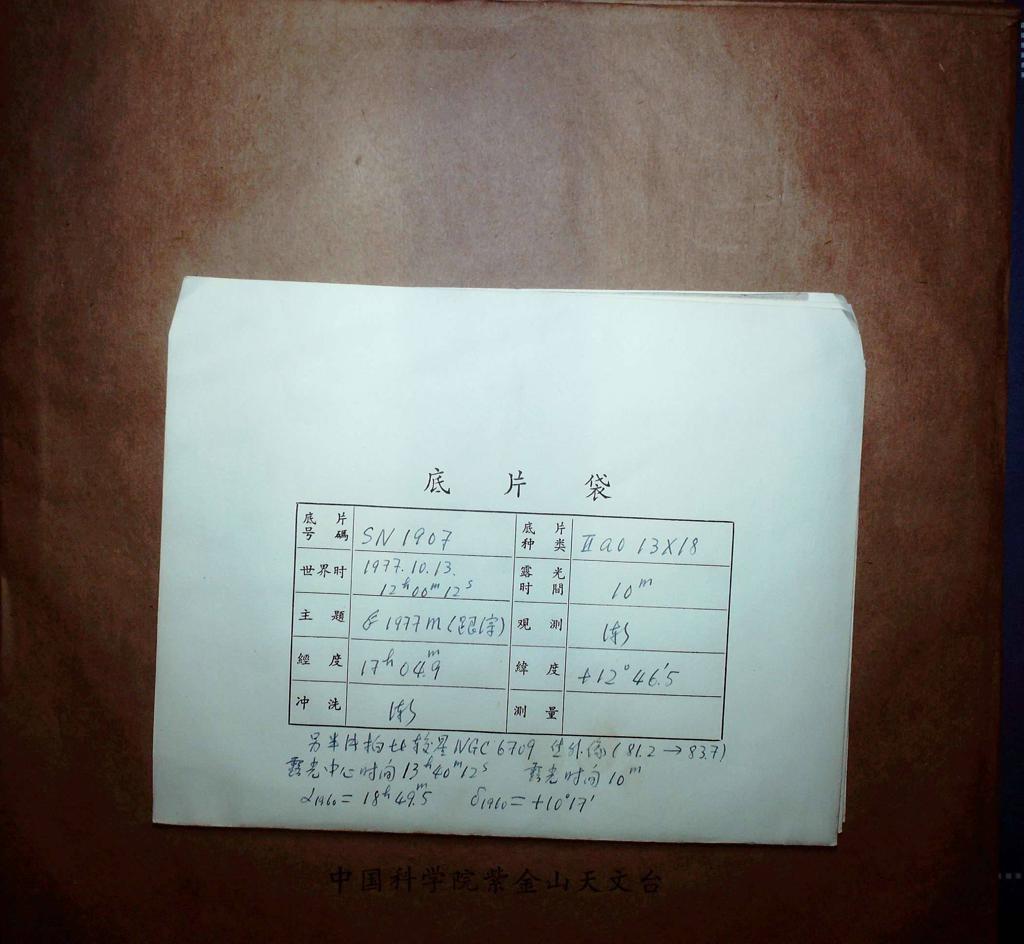 底 片 袋
底片号碼 SN 1907 底片种类 IIaO 13X18
世界时 1977.10.13. 12ʰ00ᵐ12ˢ 露光时間 10ᵐ
主題 1977m (跟踪) 观測
經度 17ʰ04ᵐ.9 緯度 +12°46'.5
冲洗 測量
另半片拍比較星 NGC 6709 焦外像 (81.2 → 83.7)
露光中心时间 13ʰ40ᵐ12ˢ 露光时间 10ᵐ
α₁₉₆₀ = 18ʰ49ᵐ.5 δ₁₉₆₀ = +10°17'
中国科学院紫金山天文台